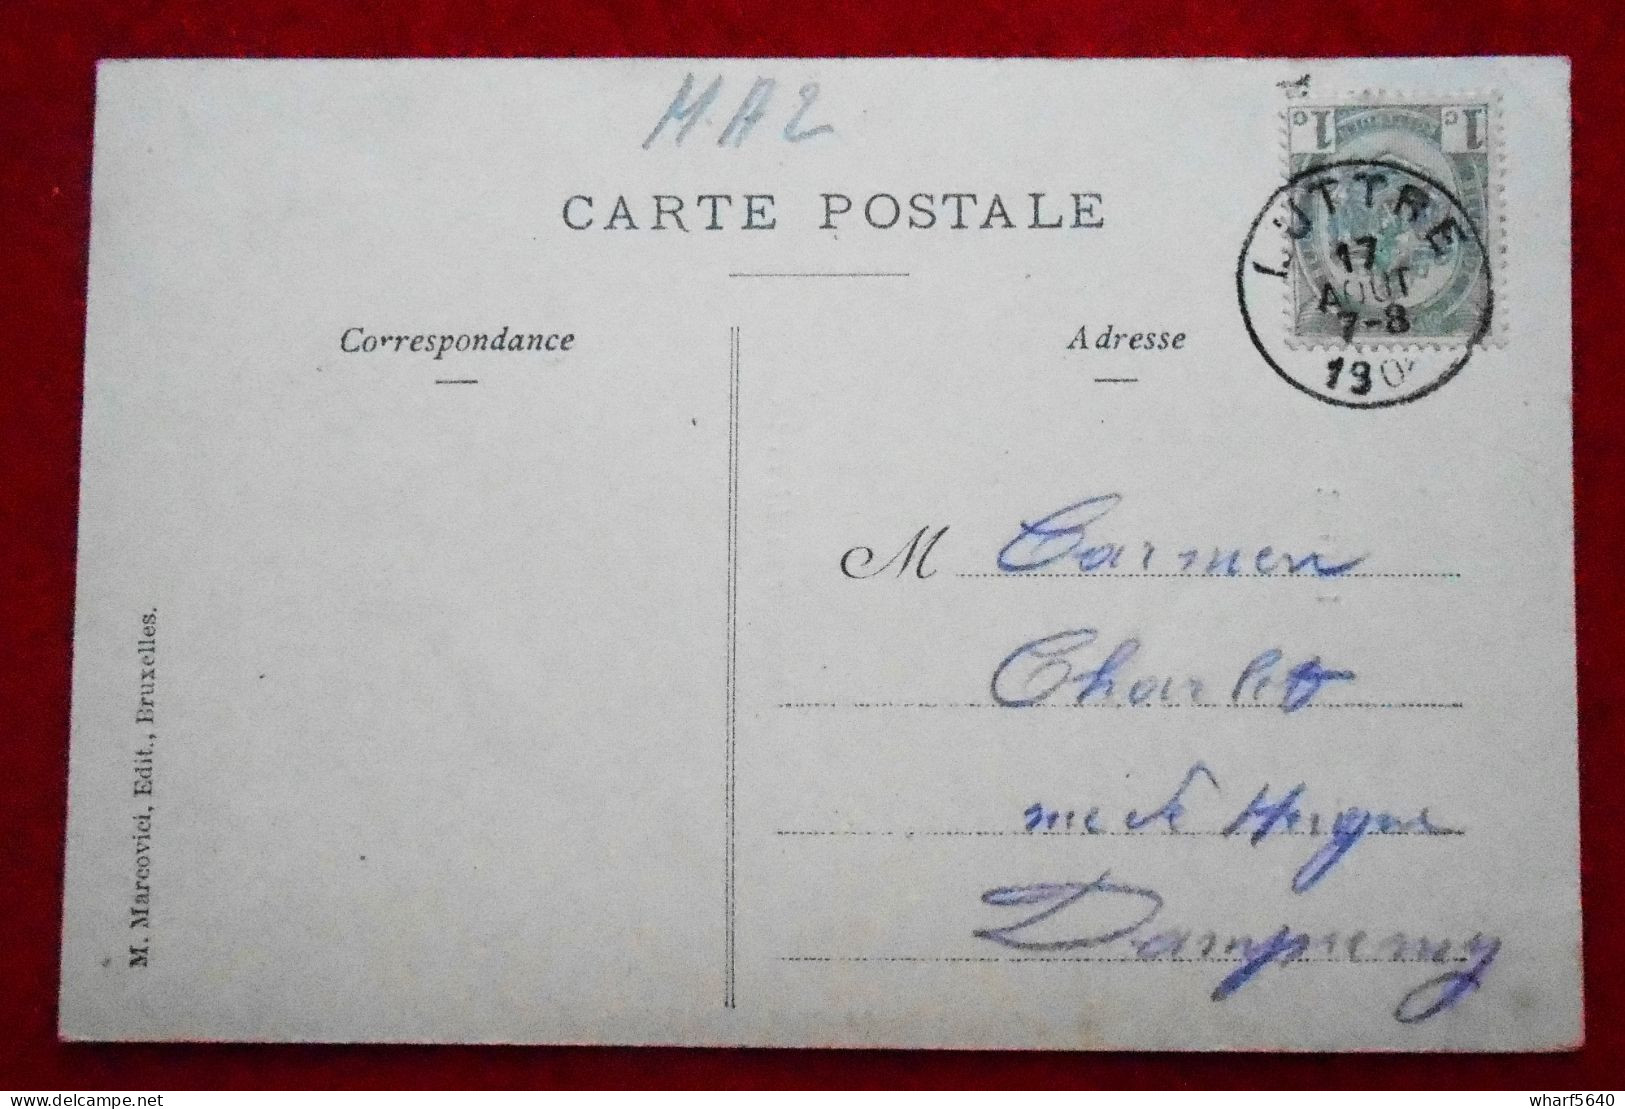 M.A 2
CARTE POSTALE
1c 1c
LUTTRE
17
AOUT
7-8
190
Correspondance
Adresse
M Carmen
Charlet
rue de Heigne
Dampremy
M. Marcovici, Edit., Bruxelles.
wharf5640